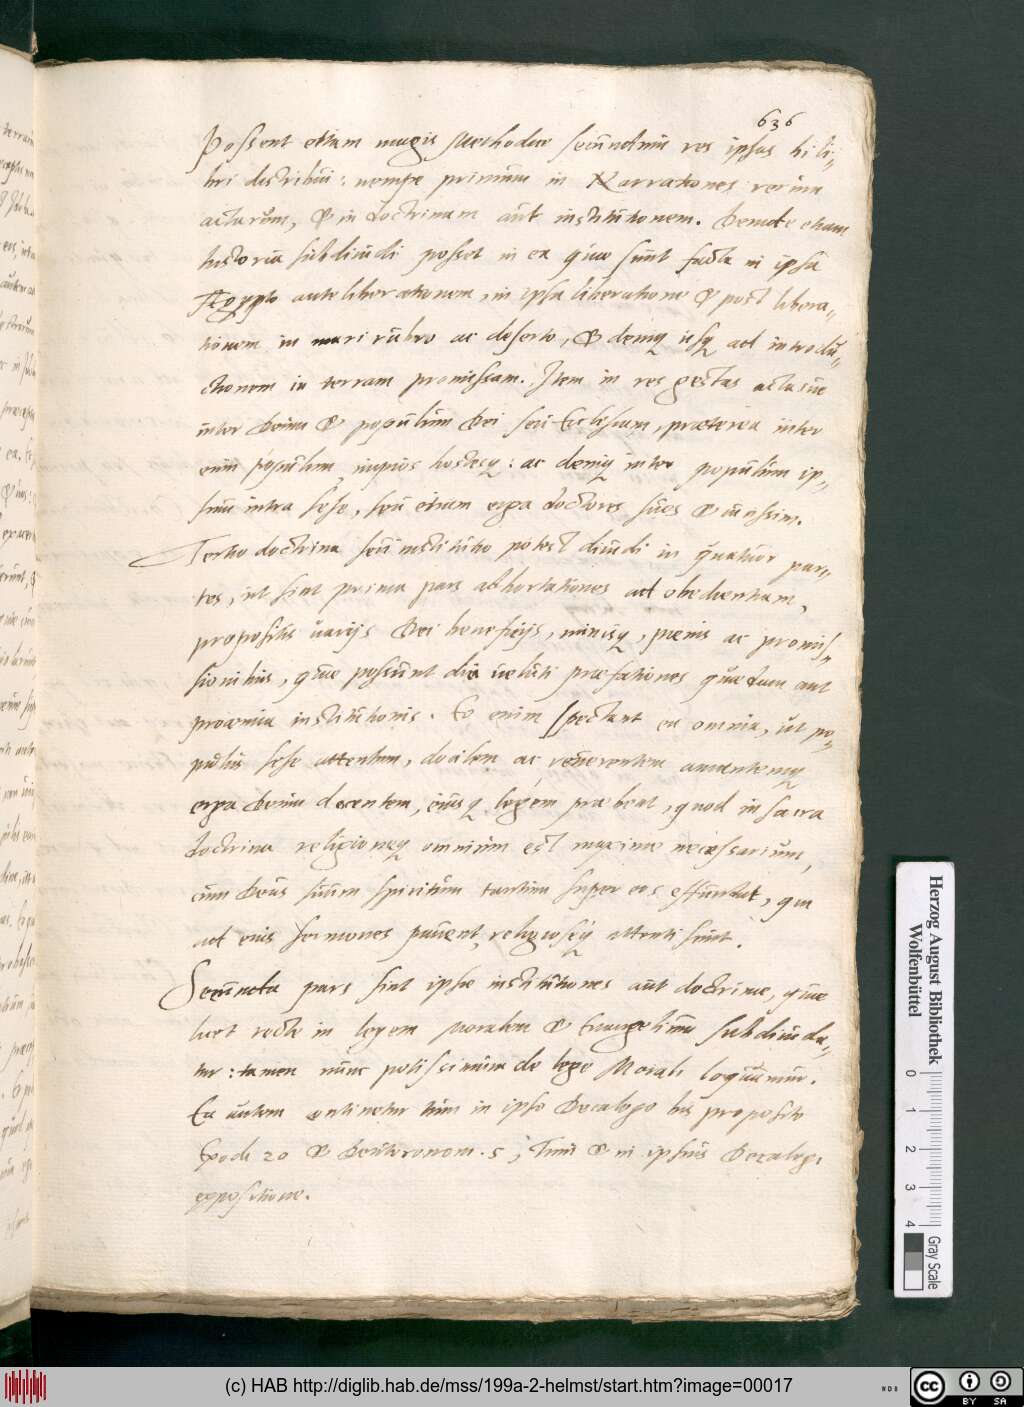 636
Possent etiam magis Methodice secundum res ipsas hi li„
bri distribui: nempe primum in Narrationes rerum
actarum, & in doctrinam aut institutionem. Deinde etiam
historia subdiuidi posset in ea quae sunt facta in ipsa
Ægypto ante liberationem, in ipsa liberatione & post libera„
tionem in mari rubro ac deserto, & deniq usq ad introdu„
ctionem in terram promissam. Item in res gestas actasue
inter Deum & populum Dei seu Ecclesiam, praeterea inter
eum populum, impios hostesq: ac deniq inter populum ip„
sum intra sese, seu etiam erga doctores suos &
Tertio doctrina seu institutio potest diuidi in quatuor par„
tes, ut sint prima pars adhortationes ad obedientiam,
propositis uarijs Dei beneficijs, minisq, poenis ac promis„
sionibus, quae possunt dici ueluti praefationes quaedam aut
prooemia institutionis. Eo enim spectant ea omnia, ut po„
pulus sese attentum, docilem ac reuerentem amantemq
erga Deum docentem, eiusq legem praebeat, quod in sacra
doctrina religioneq omnium est maxime necessarium,
cum Deus suum spiritum tantum super eos effundat, qui
ad eius sermones pauent, religioseq attenti sunt.
Secunda pars sint ipse institutiones aut doctrinae, quae
licet recte in legem moralem & Euangelium subdiuida„
tur: tamen nunc potissimum de lege Morali loquimur.
Ea autem continetur tum in ipso Decalogo bis proposito
Exodi 20 & Deuteronom. 5, Tum & in ipsius Decalogi
expositione.
Herzog August Bibliothek
Wolfenbüttel
0 1 2 3 4
Gray Scale
(c) HAB http://diglib.hab.de/mss/199a-2-helmst/start.htm?image=00017
cc BY SA